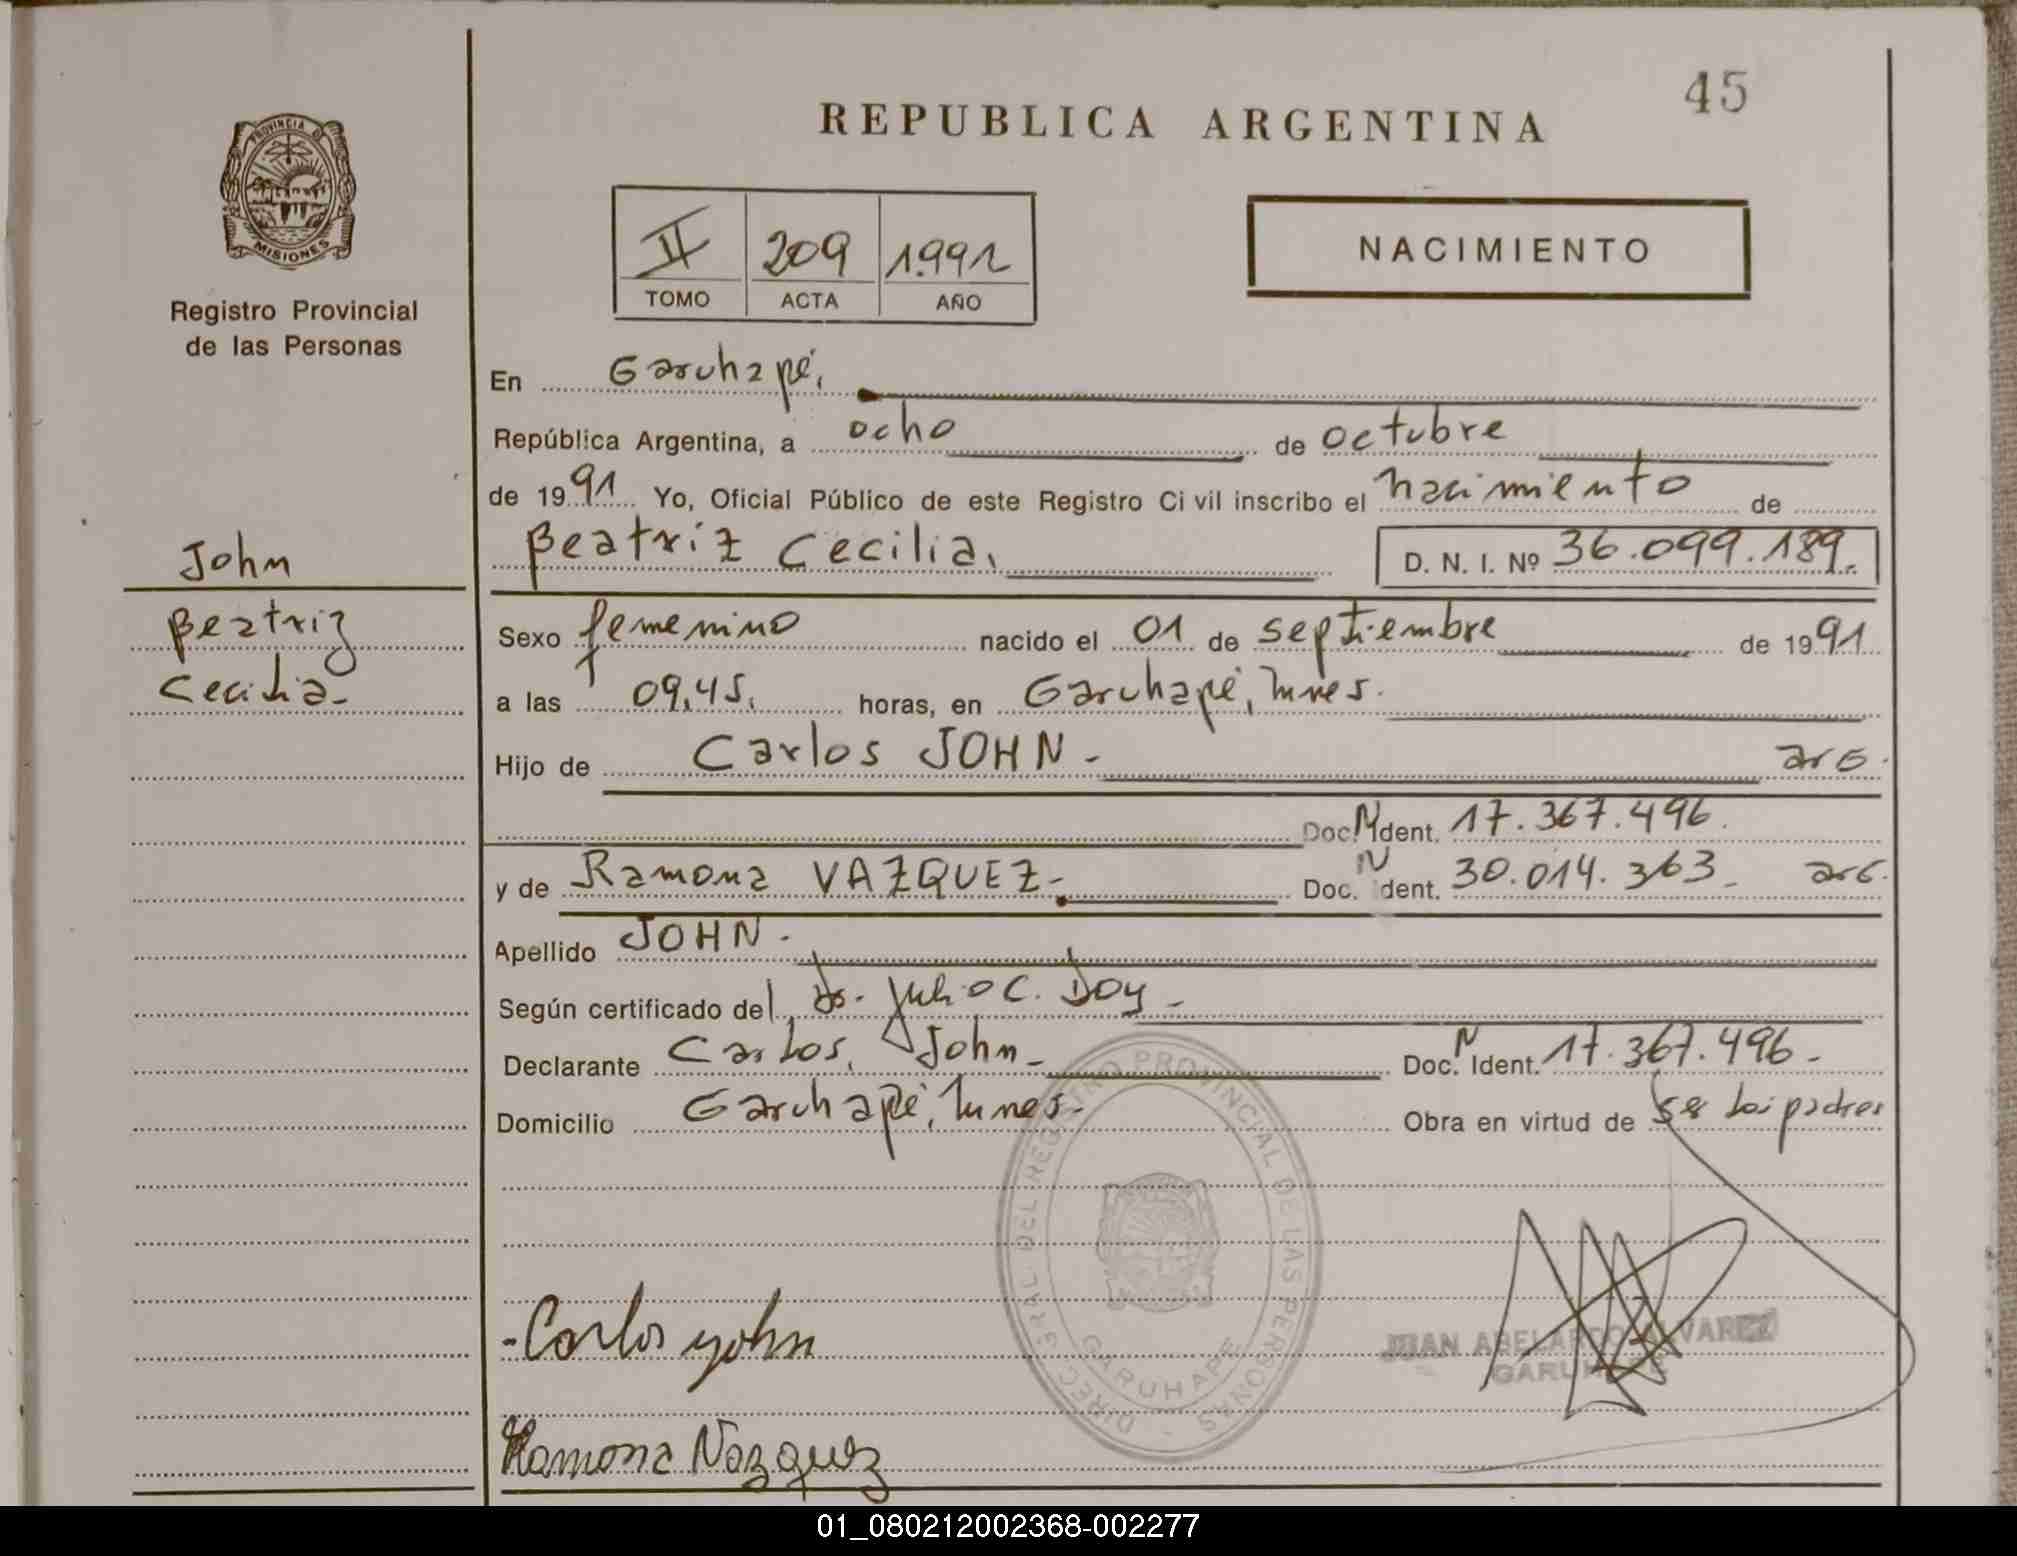 45
REPUBLICA ARGENTINA
PROVINCIA DE
MISIONES
Registro Provincial
de las Personas
II 209 1.991
TOMO ACTA AÑO
NACIMIENTO
En Garuhapé,
República Argentina, a ocho de octubre
de 1991 Yo, Oficial Público de este Registro Civil inscribo el nacimiento de
Beatriz Cecilia. D. N. I. Nº 36.099.189.-
John
Beatriz
Cecilia.-
Sexo femenino nacido el 01 de septiembre de 1991
a las 09,45, horas, en Garuhapé,
Hijo de Carlos JOHN - arg.
Doc. N Ident. 17.367.496.
y de Ramona VAZQUEZ - Doc. N Ident. 30.014.363 - arg.
Apellido JOHN -
Según certificado del Dr. Julio C. Doy -
Declarante Carlos, John - Doc. N Ident. 17.367.496 -
Domicilio Garuhapé, Obra en virtud de ser los padres
DIREC. GRAL. DEL REGISTRO PROVINCIAL DE LAS PERSONAS -
GARUHAPE
- Carlos yohn
JUAN ABELARDO ALVAREZ
GARUHAPE
Ramona Vazquez
01_080212002368-002277